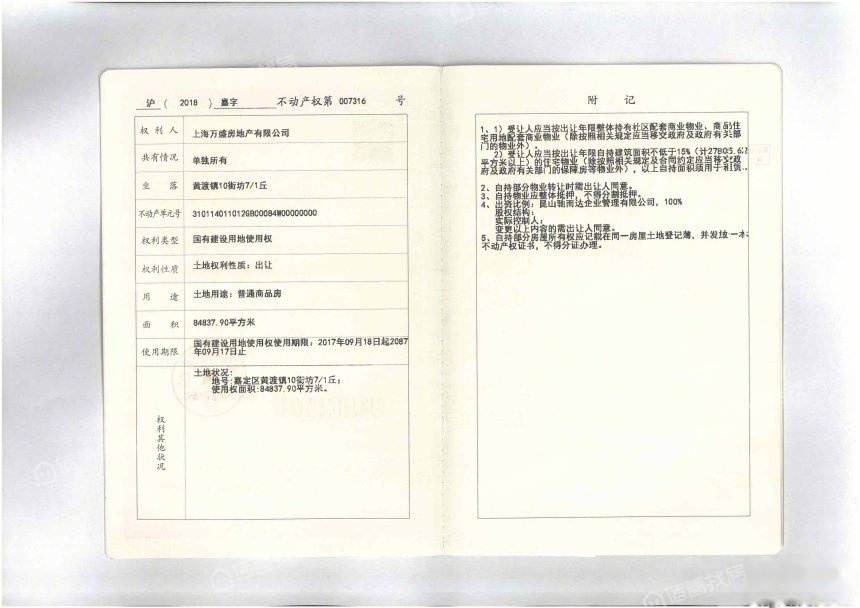 沪（ 2018 ）嘉字 不动产权第 007316 号
权利人 上海万盛房地产有限公司
共有情况 单独所有
坐落 黄渡镇10街坊7/1丘
不动产单元号 310114011012GB00084W00000000
权利类型 国有建设用地使用权
权利性质 土地权利性质：出让
用途 土地用途：普通商品房
面积 84837.90平方米
使用期限 国有建设用地使用权使用期限：2017年09月18日起2087
年09月17日止
权利其他状况
土地状况：
地号：嘉定区黄渡镇10街坊7/1丘；
使用权面积：84837.90平方米。
附记
1、1）受让人应当按出让年限整体持有社区配套商业物业、商品住
宅用地配套商业物业（除按照相关规定应当移交政府及政府有关部
门的物业外）。
2）受让人应当按出让年限自持建筑面积不低于15%（计27805.62
平方米以上）的住宅物业（除按照相关规定及合同约定应当移交政
府及政府有关部门的保障房等物业外），以上自持面积须用于租赁。
2、自持部分物业转让时需出让人同意。
3、自持物业应整体抵押，不得分割抵押。
4、出资比例：昆山驰而达企业管理有限公司，100%
股权结构：
实际控制人：
变更以上内容的需出让人同意。
5、自持部分房屋所有权应记载在同一房屋土地登记薄，并发放一本
不动产权证书，不得分证办理。